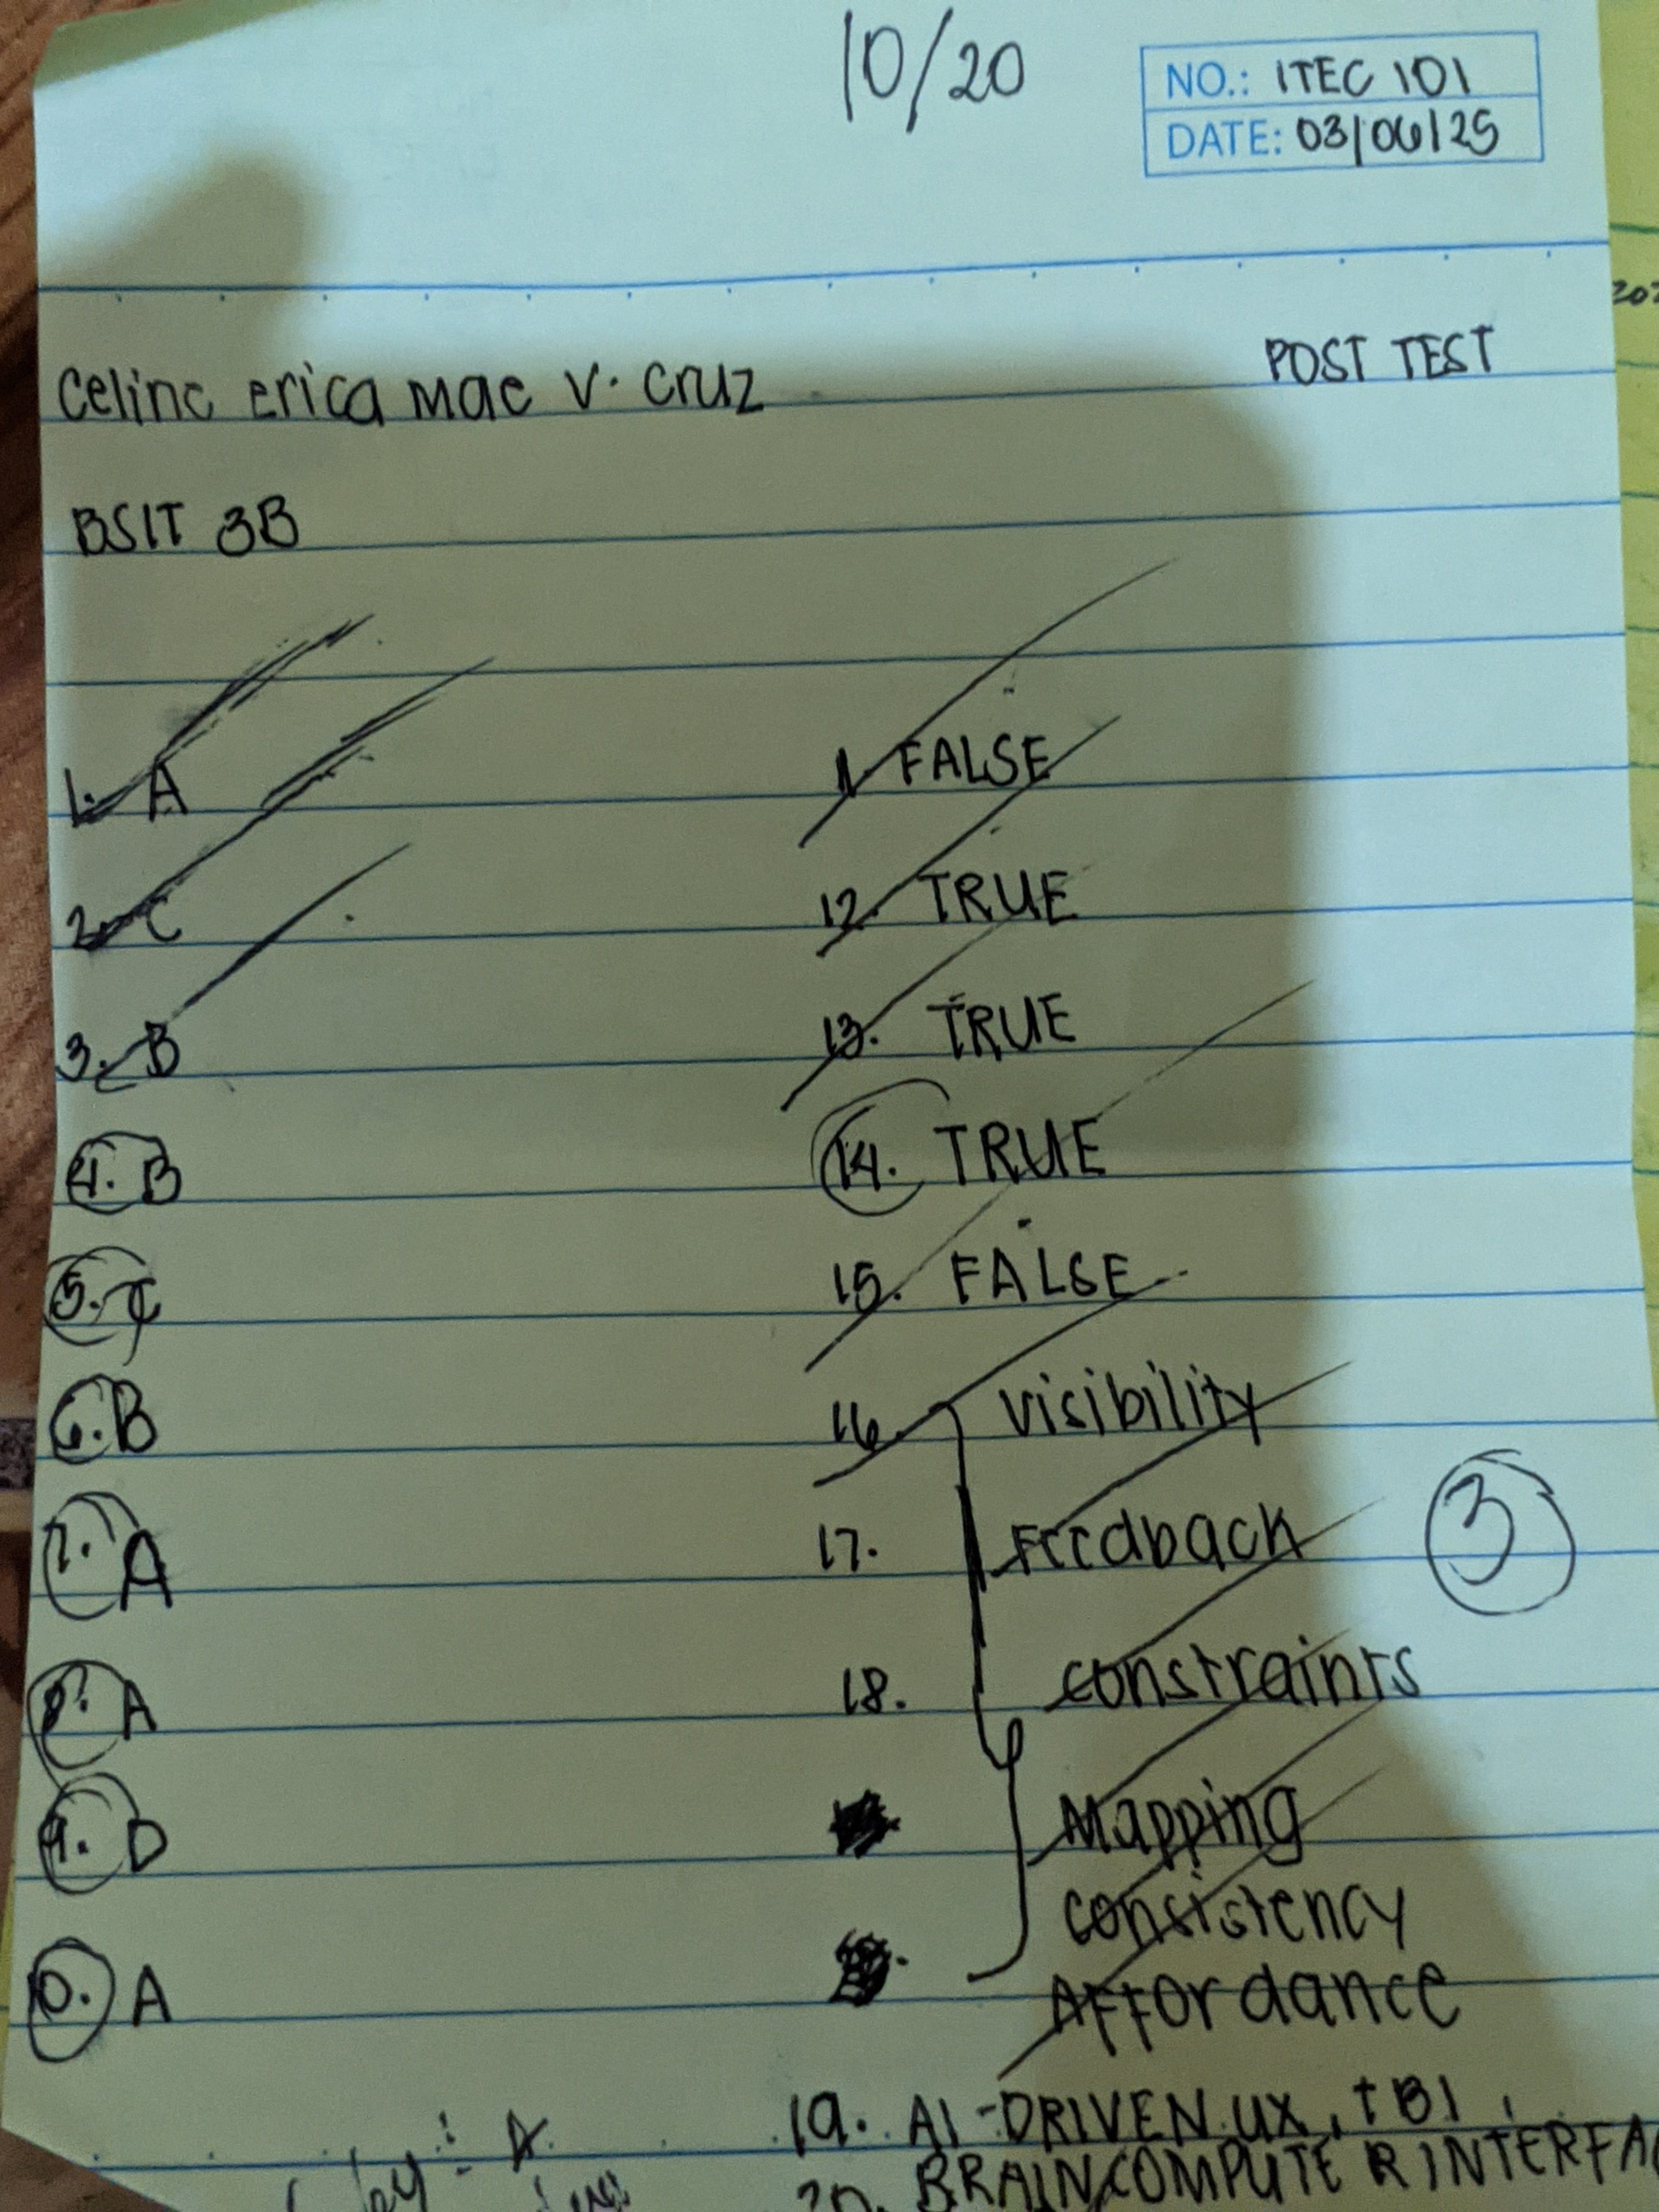 10/20
NO.: ITEC 101
DATE: 03/06/25
Celine Erica Mae V. Cruz
POST TEST
BSIT 3B
1. A
2. C
3. B
4. B
5. C
6. B
7. A
8. A
9. D
10. A
11. FALSE
12. TRUE
13. TRUE
14. TRUE
15. FALSE
16. Visibility
17. Feedback
3
18. constraints
Mapping
consistency
Affordance
19. AI-DRIVEN UX,
20. BRAIN COMPUTER